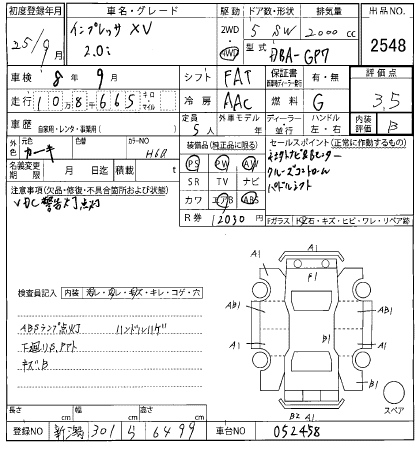 初度登録年月 車名・グレード 駆動 ドア数・形状 排気量 出品NO.
25/9月 インプレッサ XV 2.0i 2WD 4WD 5 SW 2000 cc 2548
型式 DBA-GP7
車検 8年 9月 シフト FAT 保証書 有・無 評価点
走行 10万8千665 キロ マイル 冷房 AAC 燃料 G 3.5
車歴 自家用・レンタ・事業用( ) 定員 5人 外車モデル 年 ディーラー 並行 ハンドル 左・右 内装評価 B
外色 元色 カーキ 色替 カラーNO H60
装備品(純正品に限る) セールスポイント(正常に作動するもの)
名義変更期限 月 日 積載 t
PS PW AW
SR TV ナビ
カワ エアB ABS
クルーズコントロール
パドルシフト
注意事項(欠品・修復・不具合箇所および状態)
VDC警告灯点灯
R券 12030 円
Fガラス トビ石・キズ・ヒビ・ワレ・リペア跡
検査員記入 内装 汚レ・スレ・キズ・キレ・コゲ・穴
ABSランプ点灯 ハンドルハゲ
下廻りS,アト
キズB
A1
F1
A1 A1
AB1 AB1
A1 B1 A1
B1
B2 A1
スペア
長さ cm 幅 cm 高さ cm
登録NO 新潟 301 ら 6499 車台NO 052458